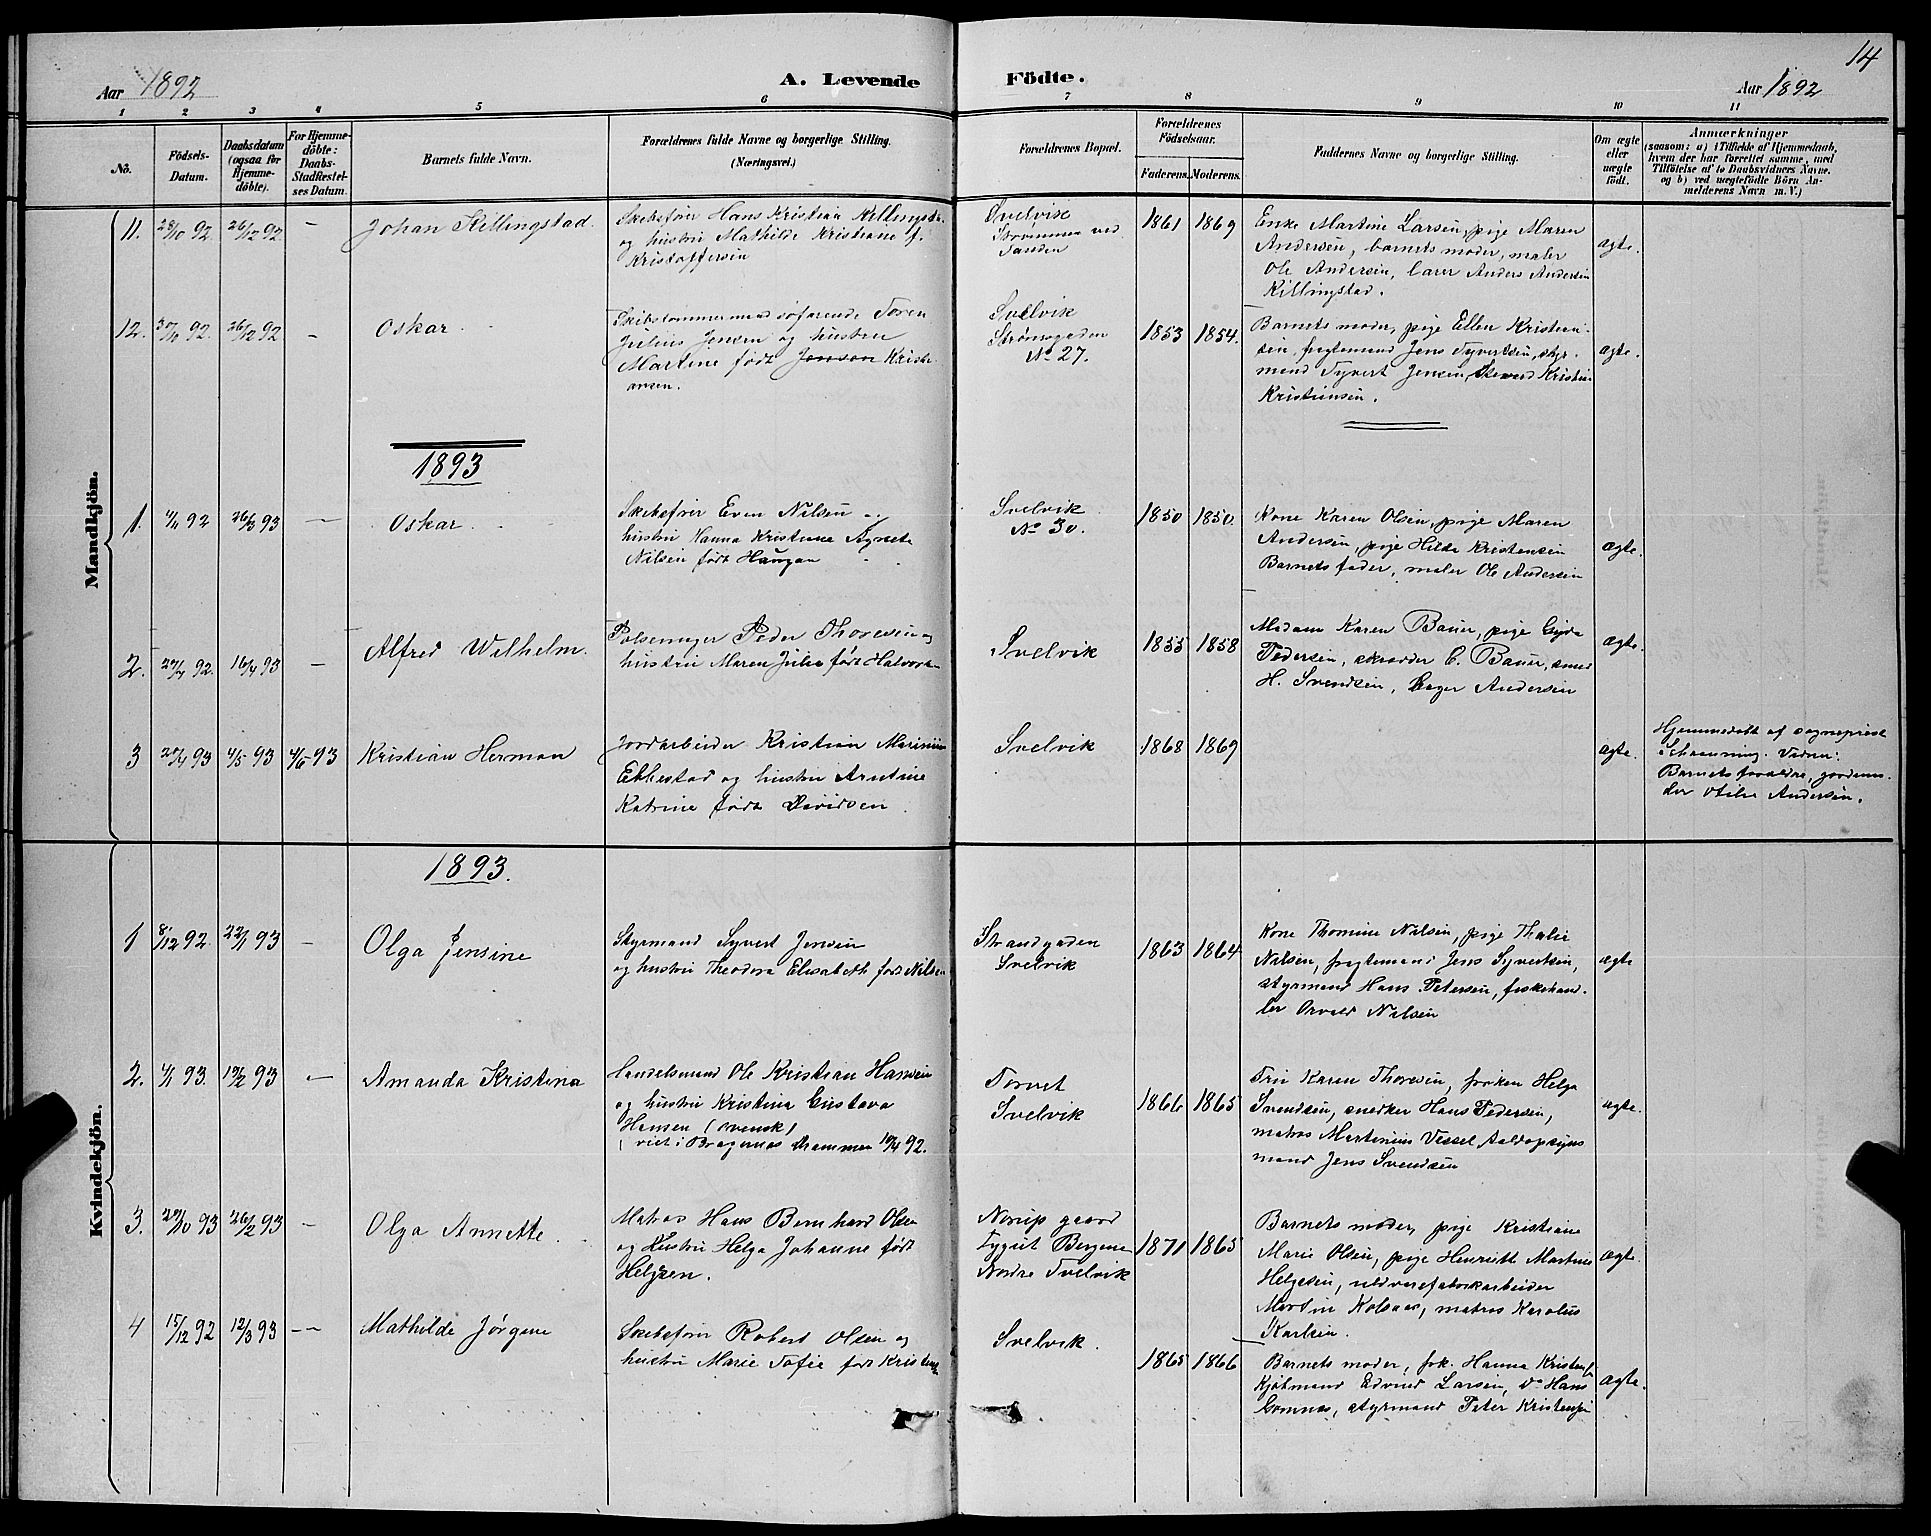 14
Aar 1892
A. Levende
Födte.
Aar 1892
1 2 3 4 5 6 7 8 9 10 11
No.
Födsels-
Datum.
Daabsdatum
(ogsaa for
Hjemme-
döbte).
For Hjemme-
döbte:
Daabs-
Stadfæstel-
ses Datum.
Barnets fulde Navn.
Forældrenes fulde Navne og borgerlige Stilling.
(Næringsvei.)
Forældrenes Bopæl.
Forældrenes
Födselsaar.
Faderens. Moderens.
Faddernes Navne og borgerlige Stilling.
Om ægte
eller
uægte
født.
Anmærkninger
(saasom: a) i Tilfælde af Hjemmedaab,
hvem der har forrettet samme, med
Tilföielse af to Daabsvidners Navne.
og b) ved uægtefödte Börn An-
melderens Navn m. V.)
Mandkjön.
11. 28/10 92. 26/12 92 —
Johan Killingstad.
Skibsfører Hans Kristian Killingsta.
og hustru Mathilde Kristiane f.
Kristoffersen
Svelvik
Strømmen ved
Sanden
1861 1869
Enke Martine Larsen, pige Maren
Andersen, barnets moder, maler
Ole Andersen, lærer Anders Andersen
Killingstad.
ægte.
12. 30/10 92. 26/12 92 —
Oskar
Skibstømmermand søfarende Søren
Julius Jensen og hustru
Martine født Jenson Kristi-
ansen.
Svelvik
Strømsgaden
No 27.
1853 1854.
Barnets moder, pige Ellen Kristian-
sen, fragtemand Jens Syvertsen, styr-
mand Syvert Jensen, stewerd Kristian
Kristiansen.
ægte.
1893
1. 4/11 92 26/3 93 —
Oskar
Skibsfører Even Nilsen og
hustru Hanna Kristiane Agnete
Nilsen født Haugan
Svelvik
No 30.
1850 1850.
Kone Karen Olsen, pige Maren
Andersen, pige Hilda Kristensen
Barnets fader, maler Ole Andersen
ægte.
2. 27/9 92. 16/4 93 —
Alfred Wilhelm.
Pølsemager Peder Thoresen og
hustru Maren Julie født Halvors
Svelvik
1855 1858
Madam Karen Bauer, pige Gyda
Pedersen, skrædder C. Bauer, smed
H. Svendsen, bager Andersen
ægte.
3 27/4 93 4/5 93 4/6 93
Kristian Herman
Jordarbeider Kristian Marinius
Ebbestad og hustru Arntine
Katrine født Davidsen.
Svelvik
1868 1869
ægte.
Hjemmedøbt af sogneprest
Schanning. Vidner:
Barnets forældre, gjordemo-
der Otilie Andersen.
Kvindekjön.
1893.
1 8/12 92. 22/1 93 —
Olga Jensine
Styrmand Syvert Jensen
og hustru Theodora Elisabeth født Nilsen
Strandgaden
Svelvik
1863 1864
Kone Thomine Nilsen, pige Thalie
Nilsen, fragtemand Jens Syvertsen,
styrmand Hans Petersen, fiskehand-
ler Osvald Nilsen
ægte
2. 4/1 93. 19/2 93 —
Amanda Kristina
Handelsmand Ole Kristian Hansen
og hustru Kristina Gustava
Hansen (svensk)
(viet i Bragernes Drammen 10/4 92.
Torvet
Svelvik
1866 1865
Fru Karen Thoresen, frøken Helga
Svendsen, snedker Hans Pedersen,
matros Martinius Vessel, toldopsyns
mand Jens Svendsen
ægte.
3. 29/10 93 26/2 93 —
Olga Annette.
Matros Hans Bernhard Olsen
og Hustru Helga Johanne født
Helgesen.
Nerup gaard
Bergene
Nordre Svelvik
1871 1865
Barnets moder, pige Kristiane
Marie Olsen, pige Henriette Martine
Helgesen, uldvarefabrikarbeider
Martin Kolsaas, matros Karolus
Karlsen.
ægte.
4 15/12 92 12/3 93 —
Mathilde Jørgine
Skibsfører Robert Olsen og
hustru Marie Sofie født Kristens
Svelvik.
1865 1866
Barnets moder, frk. Hanna Kristens
Kjøbmand Edvard Larsen, Do Hans
styrmand Peter Kristensen
ægte.